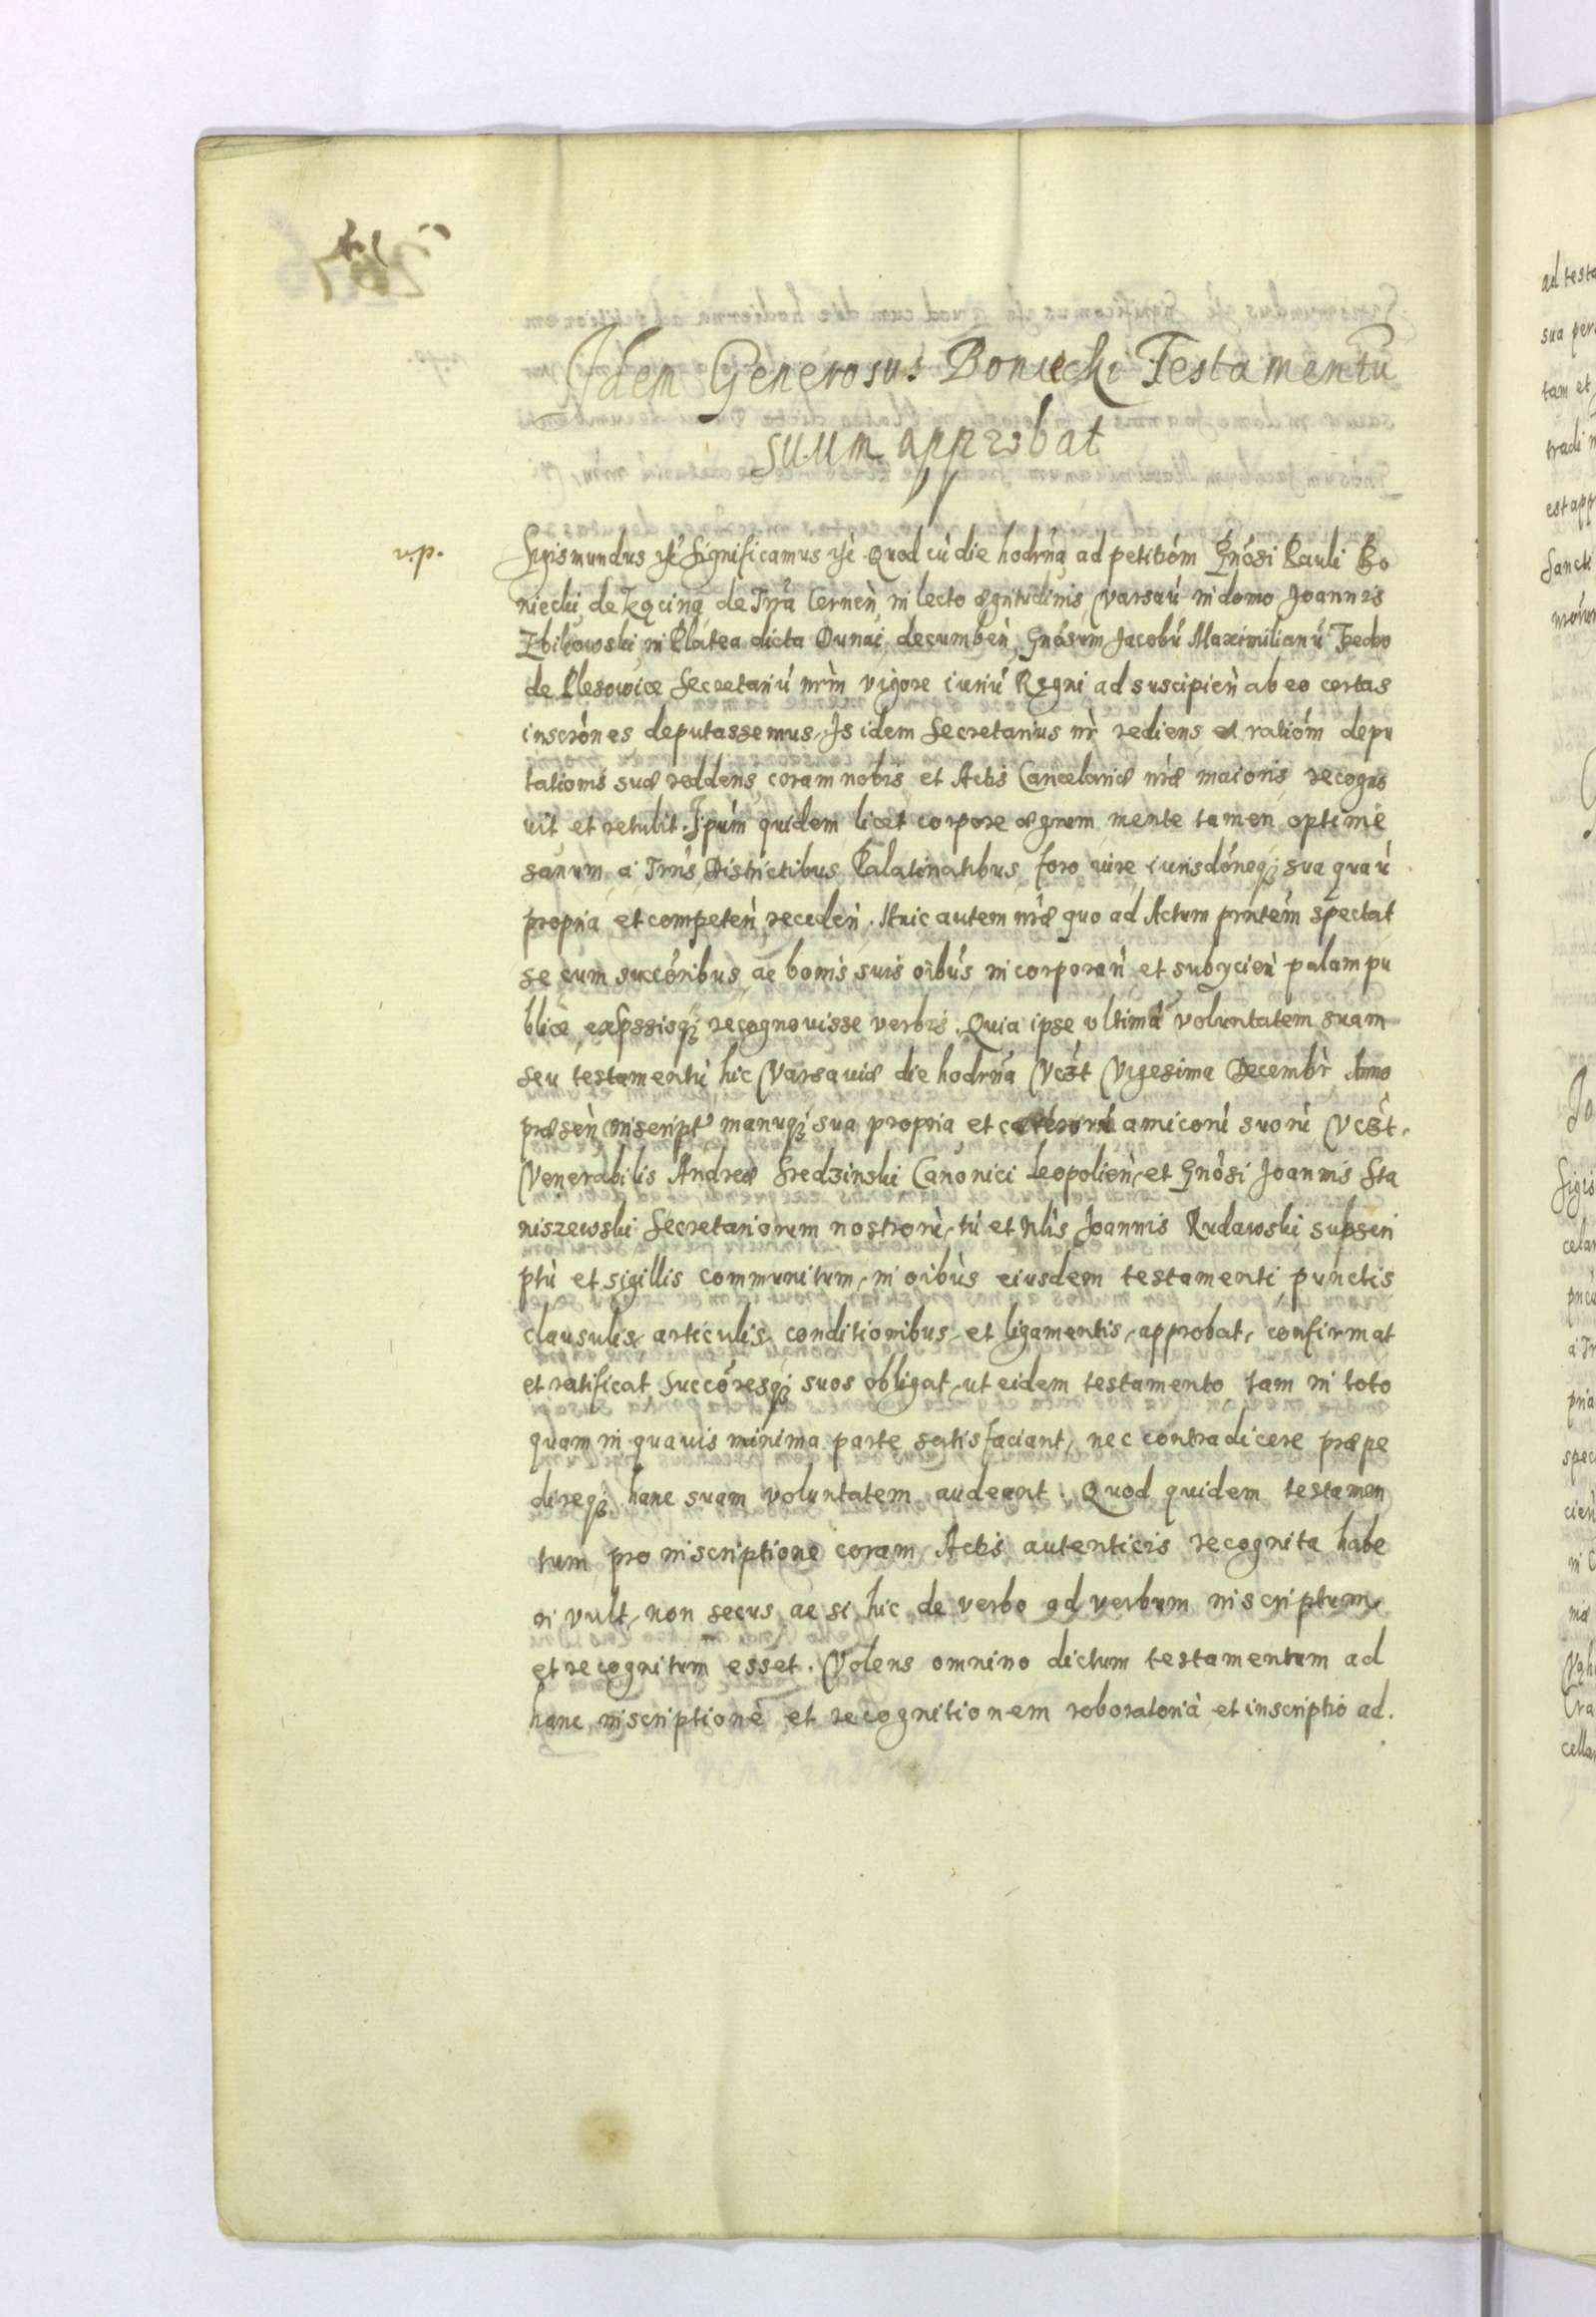 Idem Generosus Boniecki Testamentū
suum approbat
v.p.
Sigismundus etc̀ Significamus etc̀. Quod cù die hodrńa ad petitióm Gnósi Pauli Bo
niecki de de Trrà Cernèn in lecto ægritudinis Varsav́ in domo Joannis
Zbikowski in Platea dicta Dunai decumbèn, Gnósum Jacobú Maximilianú Fredro
de Plesowice Secretariú nr̀m vigore iuriú Regni ad suscipièn ab eo certas
inscrónes deputassemus, Is idem Secretarius nr̀ rediens et ratióm depu
tationis suæ reddens, coram nobis et Actis Cancelariæ nr̀æ maioris recogno
uit et retulit. Ipùm quidem licet corpore ægrum mente tamen optime
sanum, a Trrìs, Districtibus Palatinatibus, foro iure iurisdóneq; sua
propria et competèn recedèn. Huic autem nr̀æ quo ad Actum pr̀ntem spectat
se cum succóribus, ac bonis suis oìbus incorporàn et subycièn palam pu
blicè, expssisq; recognouisse verbis. Quia ipse vltimā voluntatem suam
seu testamentù hic Varsauiæ die hodrńa Vcz̀t Vigesima Decembr̀ Anno
præsèn inscript manuq; sua propria et cæterorù amicorù suorù Vcz̀t,
Venerabilis Andreæ Sredzinski Canonici Leopolièn, et Gnósi Joannis Sta
niszewski Secretariorum nostrorù, tù et Nb̀lis Joannis Rudawski subscri
ptù et sigillis communitum, in oìbus eiusdem testamenti punctis
clausulis, articulis, conditionibus, et ligamentis, approbat, confirmat
et ratificat, Succóresq; suos obligat, ut eidem testamento tam in toto
quam in quauis minima parte satisfaciant, nec contradicere præpe
direq; hanc suam voluntatem audeant. Quod quidem testamen
tum pro inscriptione coram Actis autenticis recognita habe
ri vult, non secus ac si hic de verbo ad verbum inscriptum,
et recognitum esset. Volens omnino dictum testamentum ad
hanc inscriptionè et recognitionem roboratorià et inscriptió ad.